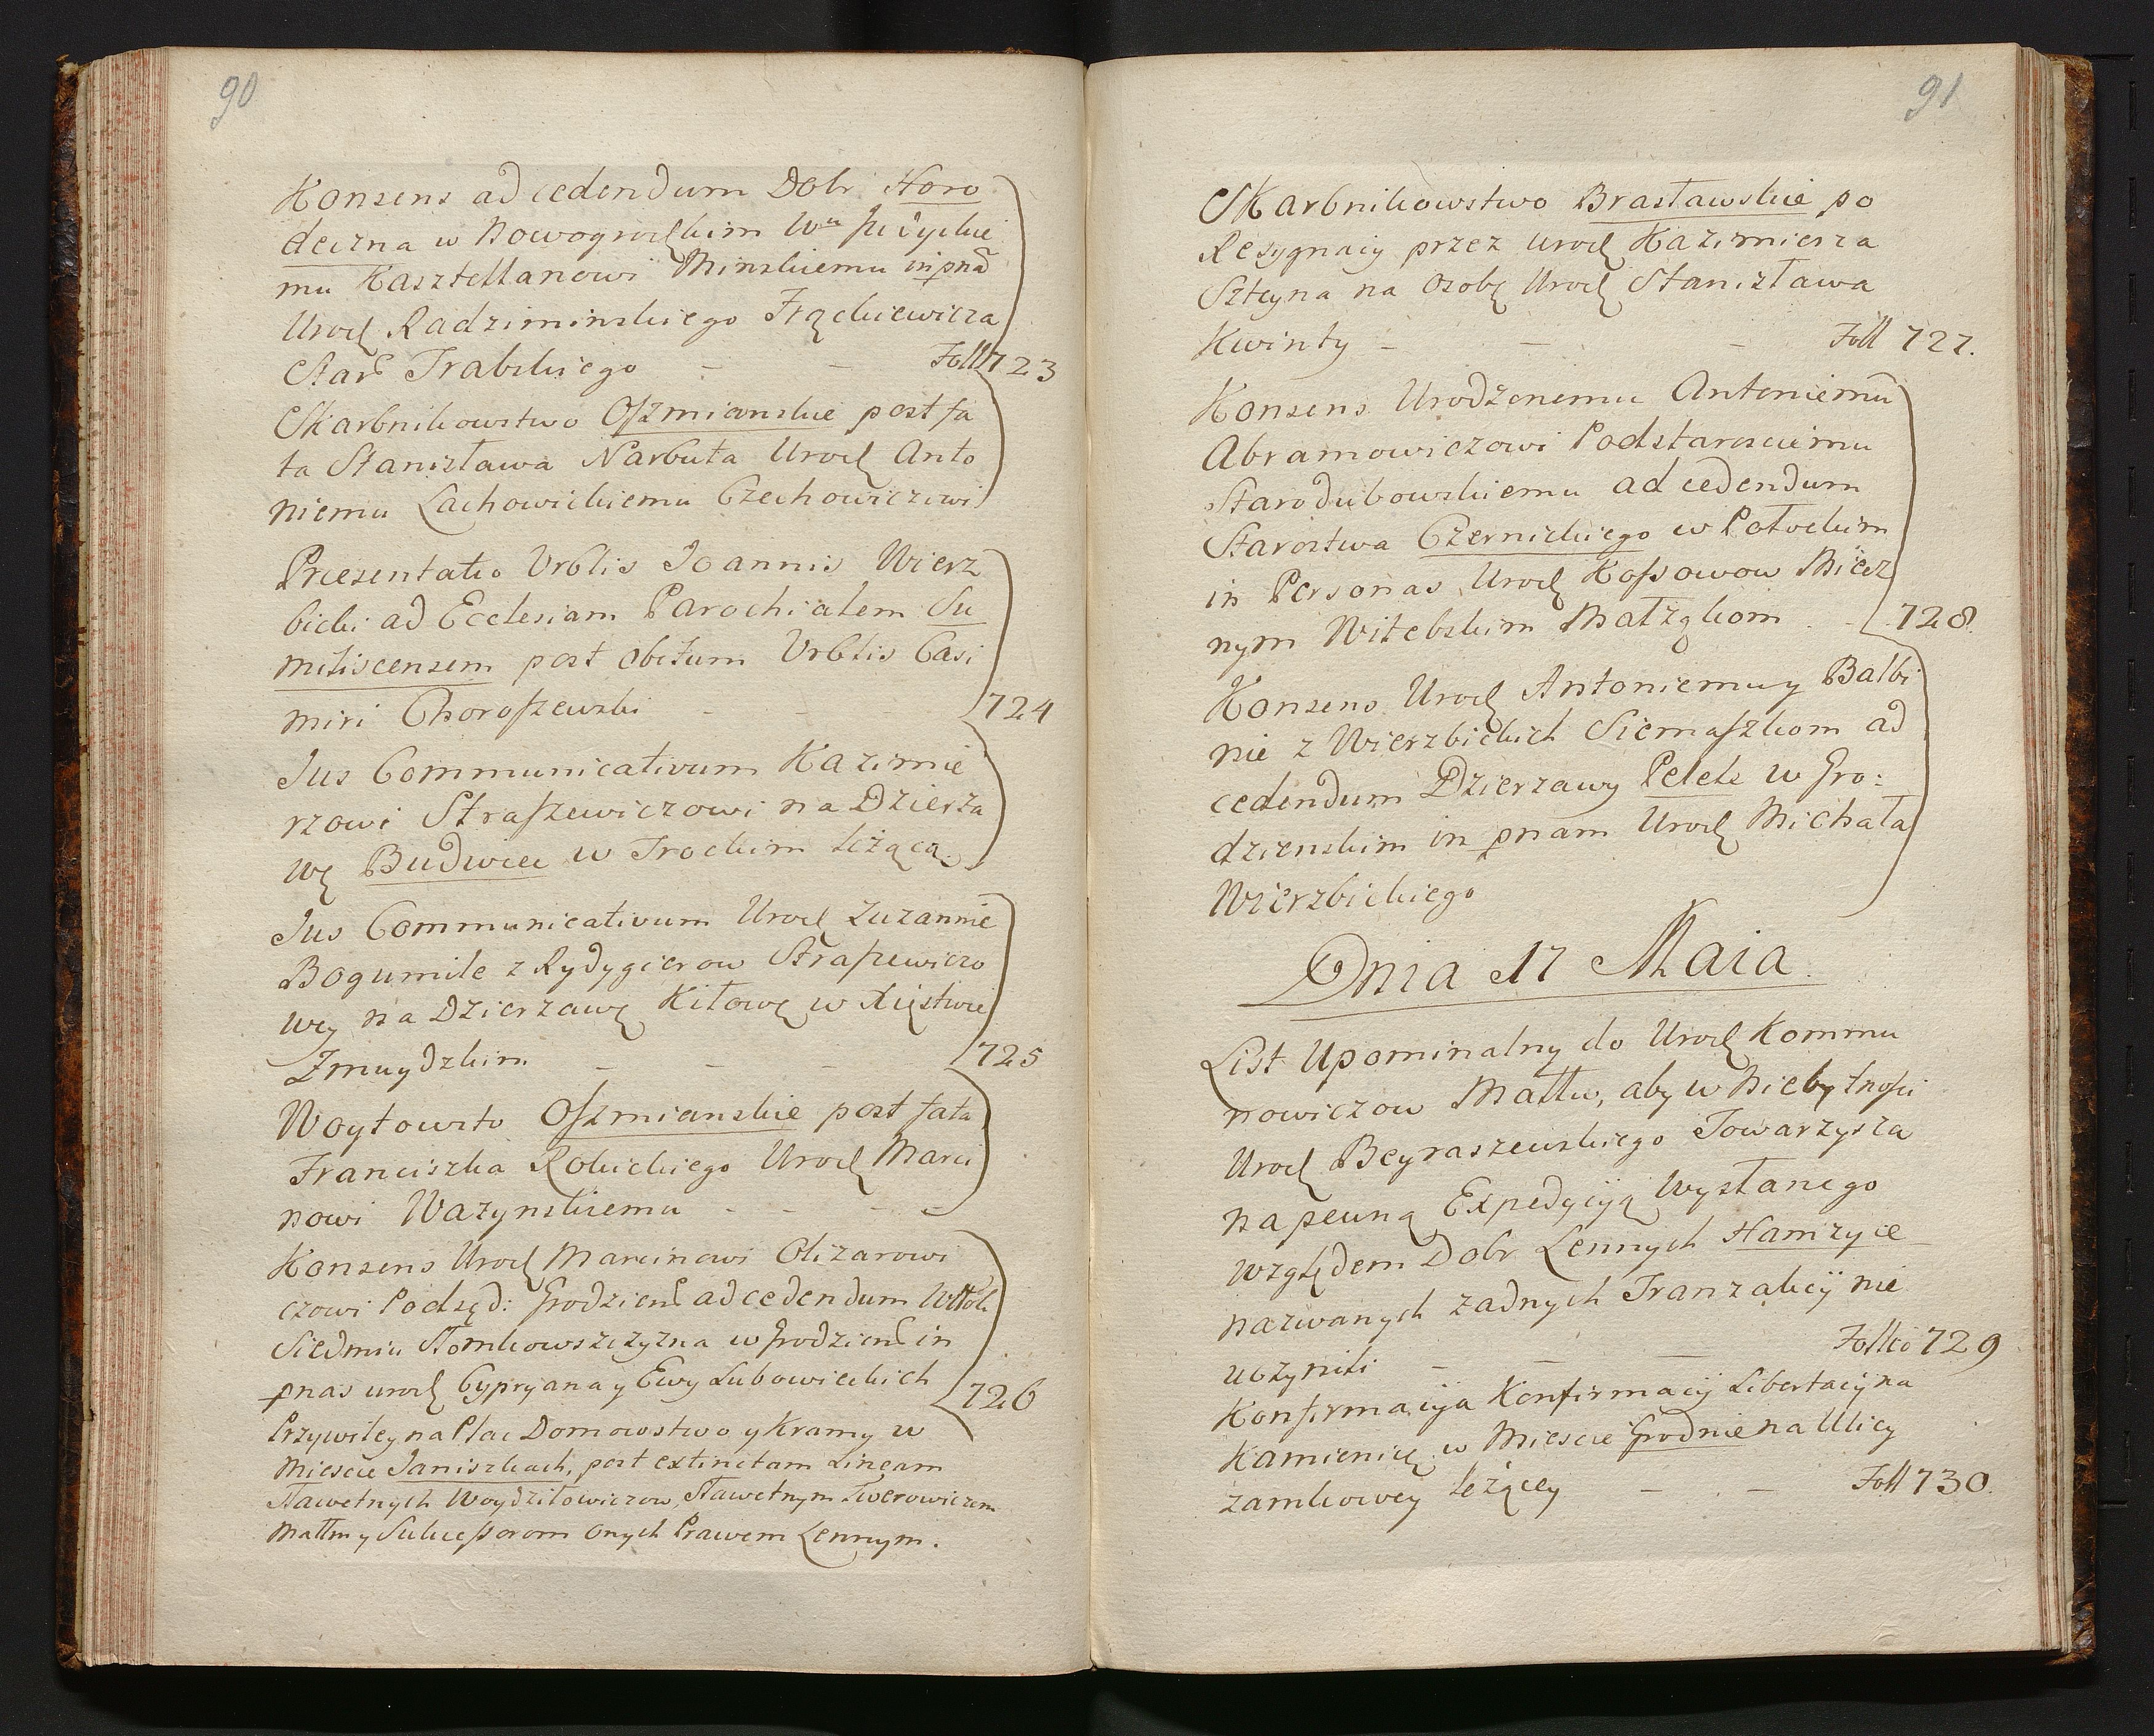 90
Konsens ad cedendum Dobr Horo
deczna w Nowogrodzkim Wu Judycкie
mu Kasztellanowi Minskiemu in pnam
Urodz Radziminskiego Frąckiewicza
Star Trabskiego - - Foll 723
Skarbnikowstwo Oszmianskie post fa
ta Stanisława Narbuta Urodz Anto
niemu Lachowickiemu Czechowiczowi
Præsentatio Vrblis Joannis Wierz
bicki ad Ecclesiam Parochialem Su
miliscensem post obitum Vrblis Casi
miri Choroszewski - - - 724
Jus Communicativum Kazimie
rzowi Straszewiczowi na Dzierża
wę Budwiec w Trockim leżącą
Jus Communicativum Urodz Zuzannie
Bogumile z Rydygierow Straszewiczo
wey na Dzierzawę Kiłowę w Xięstwie
Zmuydzkim - - - 725
Woytowsto Oszmianskie post fata
Franciszka Robickiego Urodz Marci
nowi Wazynskiemu - - - -
Konsens Urodz Marcinowi Olizarowi
czowi Podsęd: Grodzien ad cedendum Włok
Siedmiu Słomkowszczyzna w Grodzien in
pnas urodz Cypryana y Ewy Lubowickich 726
Przywiley na Plac Domowstwo y Kramy w
Miescie Janiszkach, post extinctam Lineam
Sławetnych Woydziłowiczow, Sławetnym Zwerowiczom
Małłm y Sukcessorom onych Prawem Lennym.
91
Skarbnikowstwo Brasławskie po
Resygnacij przez Urodz Kazimierza
Szteyna na Osobę Urodz Stanisława
Kwinty - - - Foll 727.
Konsens Urodzonemu Antoniemu
Abramowiczowi Podstarosciemu
Starodubowskiemu ad cedendum
Starostwa Czernickiego w Połockim
in Personas Urodz Kossowow Miecz
nym Witebskim Małżąkom - - 728.
Konsens Urodz Antoniemu y Balbi
nie z Wierzbickich Siemaszkom ad
cedendum Dzierzawy Pelele w Gro:
dzienskim in pnam Urodz Michała
Wierzbickiego
Dnia 17 Maia.
List Upominalny do Urodz Kommu
nowiczow Małłw, aby w Niebytnosci
Urodz Beyraszewskiego Towarzysza
na pewną Expedycyją Wysłanego
względem Dobr Lennych Hamzycze
nazwanych zadnych Tranzakcij nie
uczynili - - - Follio 729
Konfirmacyja Konfirmacij Libertacij na
Kamienicę w Miescie Grodnie na Ulicy
zamkowey leżącey - - Foll 730.